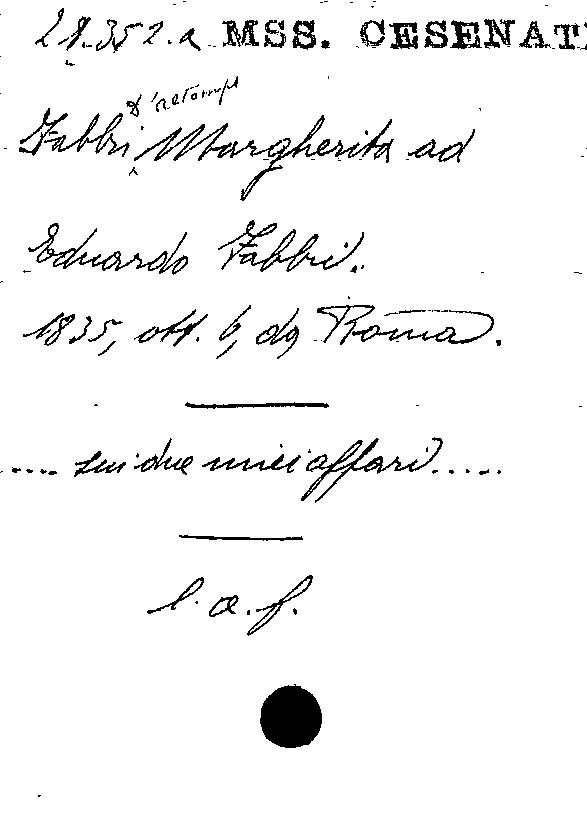 28.352.a MSS. CESENAT
D'altemps
Fabbri Margherita ad
Eduardo Fabbri.
1835, ott. 6, da Roma.
.... sui due miei affari.....
l. a. f.